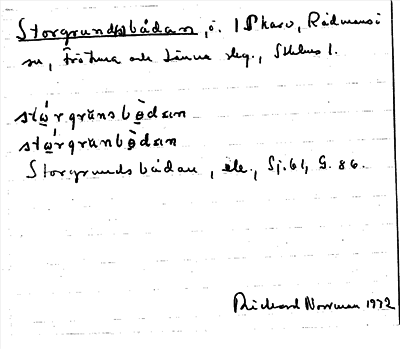 Storgrundsbådan, ö. i Skaro, Rådmansö
sn, Frötuna och Länna skg., Sthlms l.
stǫ́rgrūnsbǫ̀dan
stǫ́rgrunbǫ̀dan
Storgrundsbådan, ek., Sj. 61, G. 86.
Rickard Norrman 1972